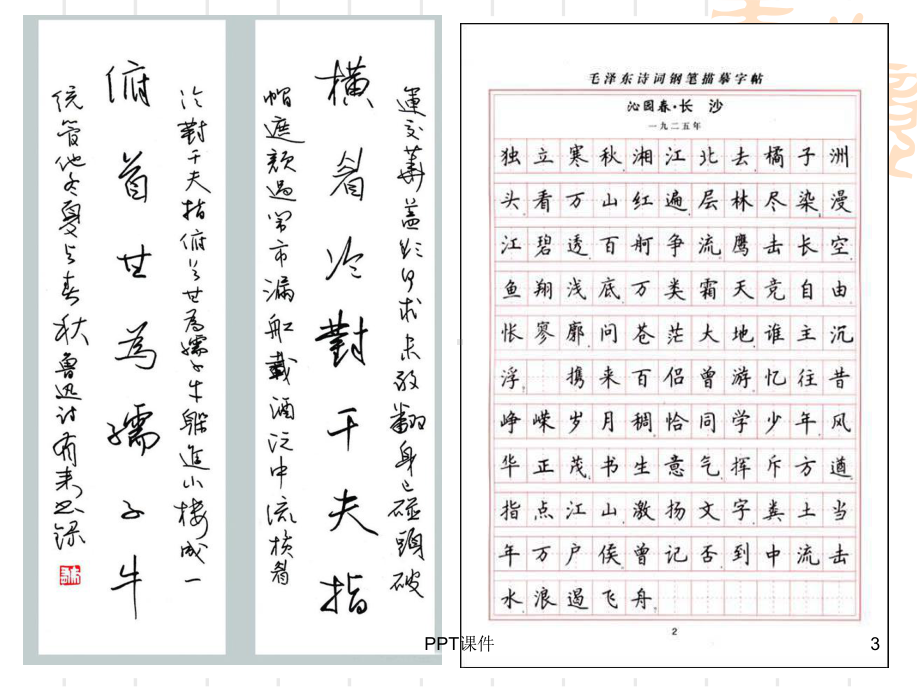 運交華蓋欲何求未敢翻身已碰頭破
横眉冷對千夫指
帽遮顏過鬧市漏船載酒泛中流横眉
冷對千夫指俯首甘為孺子牛躲進小樓成一
俯首甘為孺子牛
统管他冬夏与春秋鲁迅诗
毛泽东诗词钢笔描摹字帖
沁园春·长沙
一九二五年
独立寒秋湘江北去橘子洲
头看万山红遍层林尽染漫
江碧透百舸争流鹰击长空
鱼翔浅底万类霜天竞自由
怅寥廓问苍茫大地谁主沉
浮 携来百侣曾游忆往昔
峥嵘岁月稠恰同学少年风
华正茂书生意气挥斥方遒
指点江山激扬文字粪土当
年万户侯曾记否到中流击
水浪遏飞舟
2
PPT课件
3